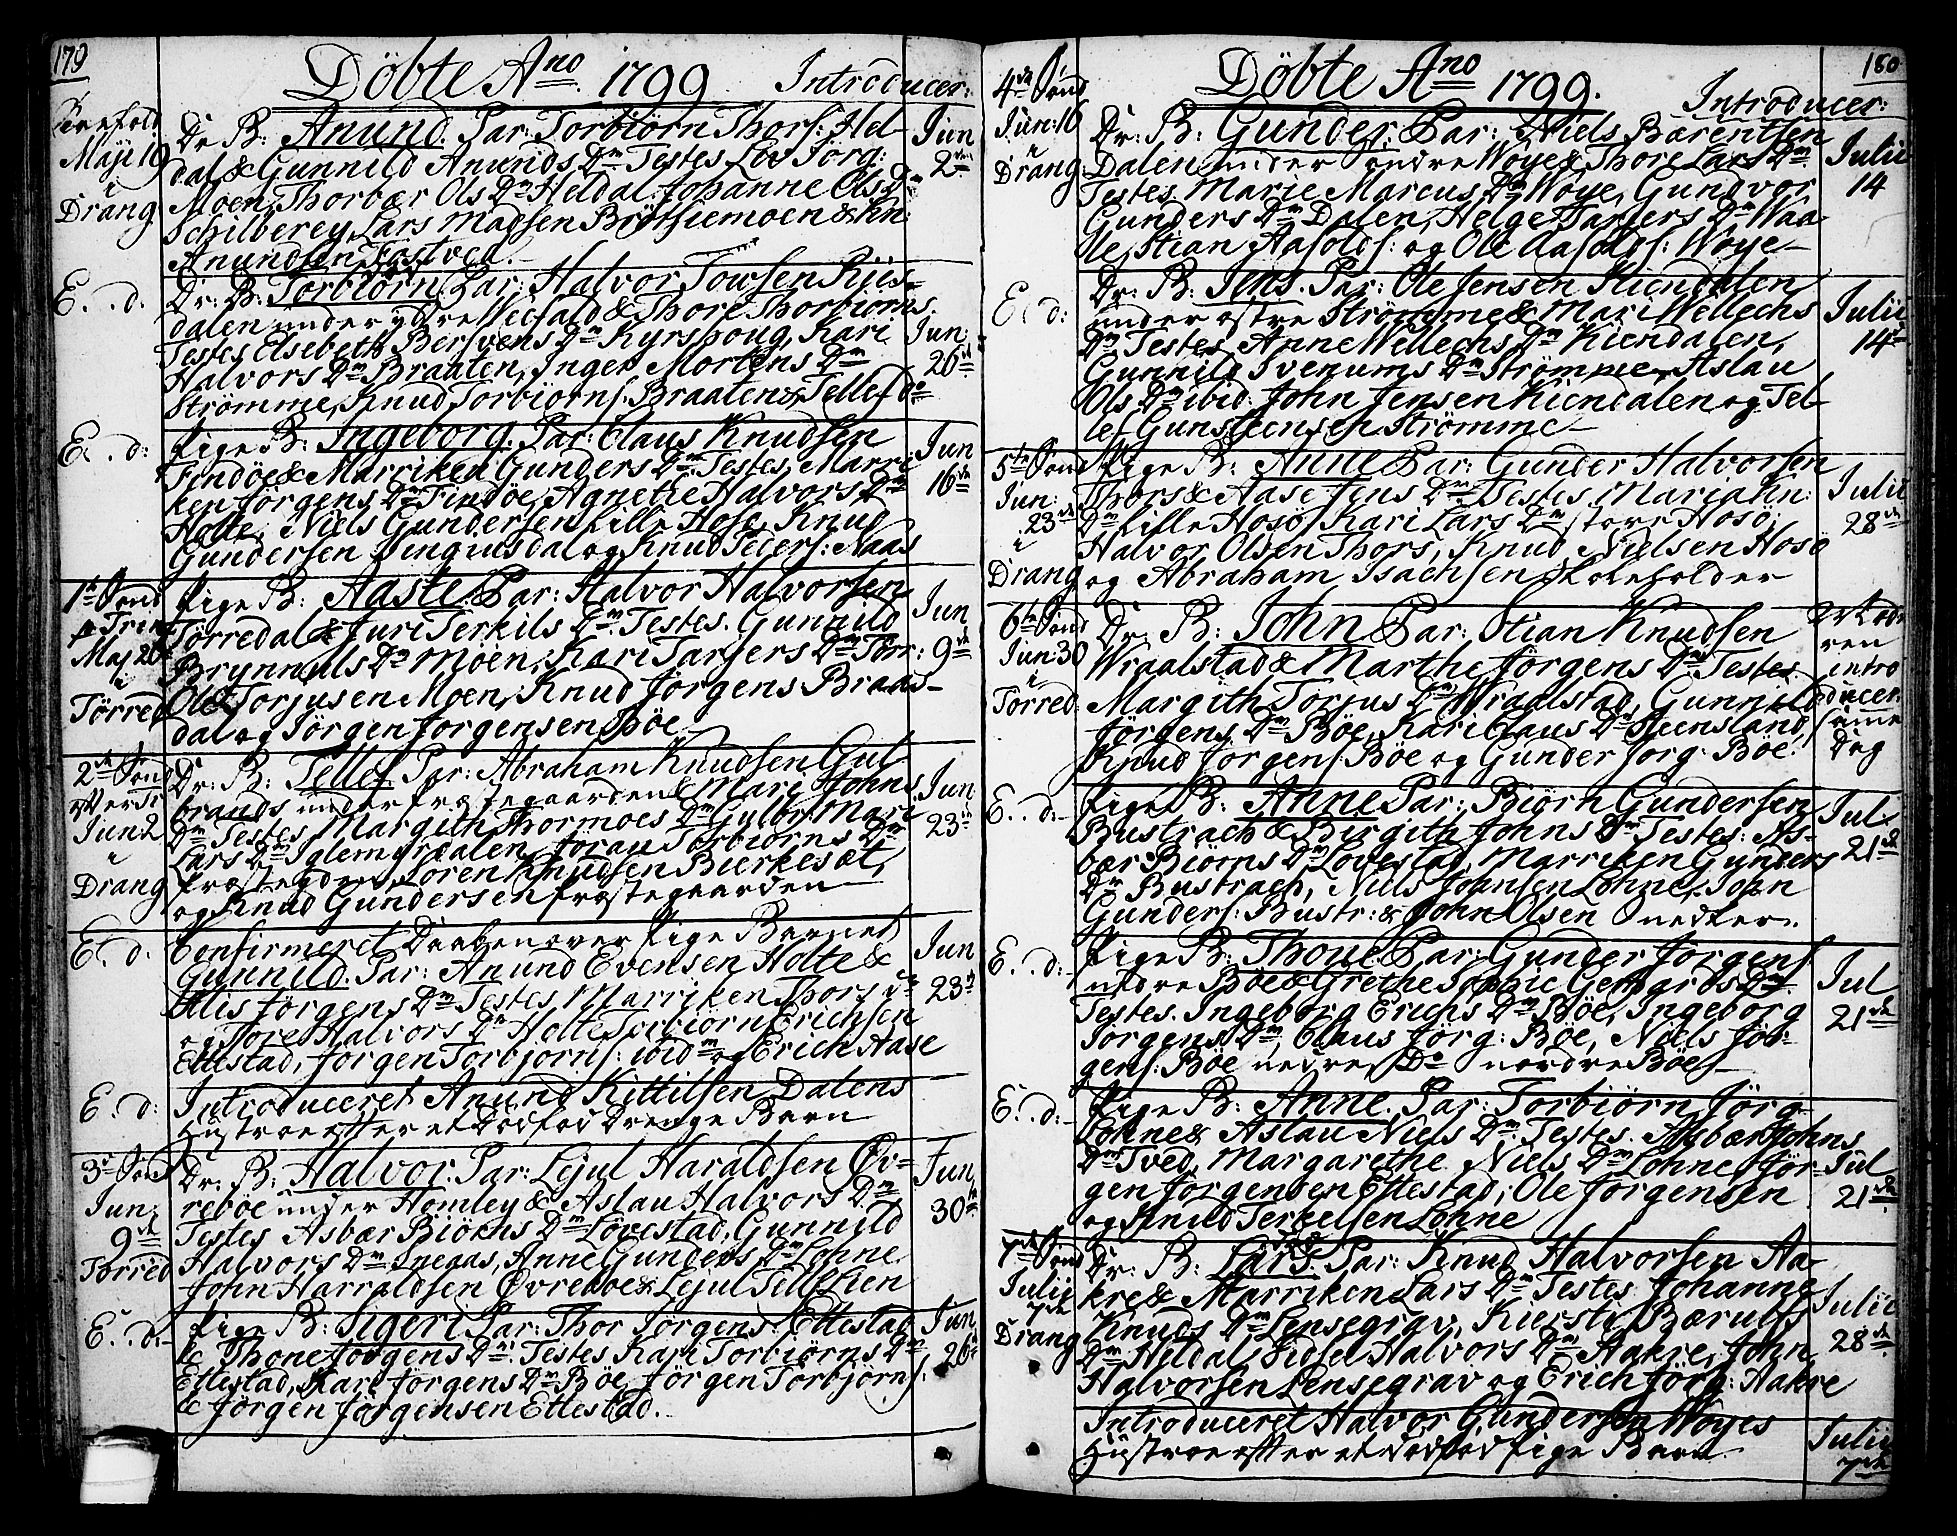 179
Döbte Ano 1799 Introducer:
Maji 19
i
Drang
Dr B: Anund. Par: Torbiörn Thors: Hel-
dal & Gunnild Anunds Dm Testes Liv Jörg:
Moen, Thorbær Ols Dm Heldal Johanne Ols Dm
Schilberey, Lars Madsen Bröttiemoen & Kn:
Anundsen Tastved.
Jun
2
E. d.
Dr: B: Torbiörn Par: Halvor Towsen Riis-
dalen under ydre Weefald & Thore Thorbiörns
Testes Elsebeth Bersvens Dm Kyrshoug, Kari
Halvors Dm Braaten, Inger Mortens Dm
Strömme, Knud Torbiörns: Braaten & Tellef Do
Jun:
26
E. d:
Pige B: Ingeborg. Par: Claus Knudsen
Findöe & Marriken Gunders Dm Testes, Marri-
ken Jörgens Dm Findöe, Agnetie Halvors Dm
Holte, Niels Gundersen Lille Hosö, Knud
Gundersen Dinguisdal og Knud Peders: Naas
Jun
16de
1ste Sönd
p Trin
Maj 26
i
Törred
Pige B: Aaste. Par: Halvor Halvorsen
Törredal & Juri Terkils Dm Testes. Gunnild
Brynnuls Dm Möen, Kari Tarjers Dm Törr:
Ole Torjusen Moen, Knud Jörgens Braas-
dal og Jörgen Jorgensen Böe
Jun
9de
2de Sönd
Jun 2
i
Drang
Dr: B: Tellef. Par: Abraham Knudsen Gul-
brands under Præstegaarden & Mari Johns
Dm Testes Margith Thormoes Dm Gulbr: Mari
Lars Dm Iglemyrdalen, Joran Torbiörns Dm
Præstegden, Sören Knudsen Bierkesæt,
og Knud Gundersen Præstegaarden
Jun
23
E. d.
Confirmeret Daaben over Pige Barnet
Gunnild. Par: Anund Evensen Holte &
Alis Jörgens Dm Testes Marriken Thors Dm
og Tore Halvors Dm Holte Torbiörn Erichsen
Ettestad, Jörgen Torbjörns: ibid og Erich Aase
Jun
23
E. d:
Introduceret Anund Kittilsen Dalens
Hustroe efter et Dödföd Drenge Barn
3de Sönd
Jun:
9de
i
Törred
Dr: B: Halvor. Par: Lejul Haraldsen Öv-
reböe under Homley & Aslau Halvors Dm
Testes Asbær Biörns Dm Lovestad, Gunnild
Halvors Dm Snegas, Anne Gunders Dm Lohne
John Harraldsen Övreboe & Lejul Tellefsen
Jun
30
E. d.
Pige B: Sigeri Par: Thor Jörgens: Ettestad
& Thone Jörgens Dm. Testes Kari Torbiörns Dm
Ettestad, Kari Jörgens Dm Böe, Jörgen Torbjörns:
& Jörgen Jörgensen Ettestad.
Jun
26
180
Döbte Ano 1799. Introducer:
4de Sönd
Jun: 16
i
Drang
Dr: B: Gunder. Par: Niels Bærentsen
Dalen under söndre Woye & Thore Lars Dm
Testes. Marie Marcus Dm Woye, Gundvor
Gunders Dm Dalen, Helge Tarjers Dm Waa-
le, Stian Aasolds: og Ole Aasolds: Woye
Julii
14
E. d:
Dr: B: Jens. Par: Ole Jensen Kiendalen
under östre Strömme & Mari Wellechs
Dm Testes Anne Wellechs Dm Kiendalen,
Gunnild Svenums Dm Strömme, Aslau
Ols Dm ibid. John Jensen Kiendalen og Tel-
lef Gunsteensen Strömme
Julii
14
5te Sönd
Jun:
23de
i
Drang
Pige B: Anne Par: Gunder Halvorsen
Thors & Aase Jens Dm Testes, Maria Kn:
Dm Lille Hosö, Kari Lars Dm store Hosö,
Halvor Olsen Thors, Knud Nielsen Hosö
og Abraham Isachsen Skoeholder
Julii
28de
6te Sönd
Jun 30
i
Törred:
Dr: B: John Par: Stian Knudsen
Wraalstad & Marthe Jörgens Dm Testes
Margith Torjus Dm Wraalstad, Gunnild
Jörgens Dm Böe, Kari Claus Dm Steensland,
Öyvud Jörgens: Böe og Gunder Jörg: Böe.
intro
ducer
same
Dag
E. d:
Pige B: Anne Par: Biörn Gundersen
Bustrach & Birgith Johns Dm Testes: As-
bær Biörns Dm Lovestad, Marriken Gunders
Dm Bustrach, Niels Johnsen Lohne, John
Gunders: Bustr: & John Olsen Snedker.
Jul.
21de
E. d:
Pige B: Thone Par: Gunder Jörgens:
nedre Böe & Grethe Sophie Gergards Dm
Testes. Ingeborg Erichs Dm Böe, Ingeborg
Jörgens Dm, Claus Jörg: Böe, Niels Jör-
gens: Böe nedre, Do nordre Böe
Jul
21de
E. d:
Pige B: Anne Par: Torbiörn Jörg
Lohne & Aslau Niels Dm. Testes. Asbær Johns
Dm Tved, Margarethe Niels Dm Lohne, Jör-
gen Jörgensen Ettestad, Ole Jörgensen
og Knud Terkelsen Lohne
Jul
21de
7de Sönd
Julii
7de
i
Drang
Dr: B: Lars. Par: Knud Halvorsen Aa-
kre & Marriken Lars Dm Testes Johanne
Knuds Dm Lensegrav, Kiersti Bærulfs
Dm Heldal, Sidsel Halvors Dm Aakre, John
Halvorsen Lensegrav og Erich Jörg: Aakre
Julii
28de
Introduceret Halvor Gundersen Woyes
Hustroe efter et dödföd Pige Barn
Julii
7de